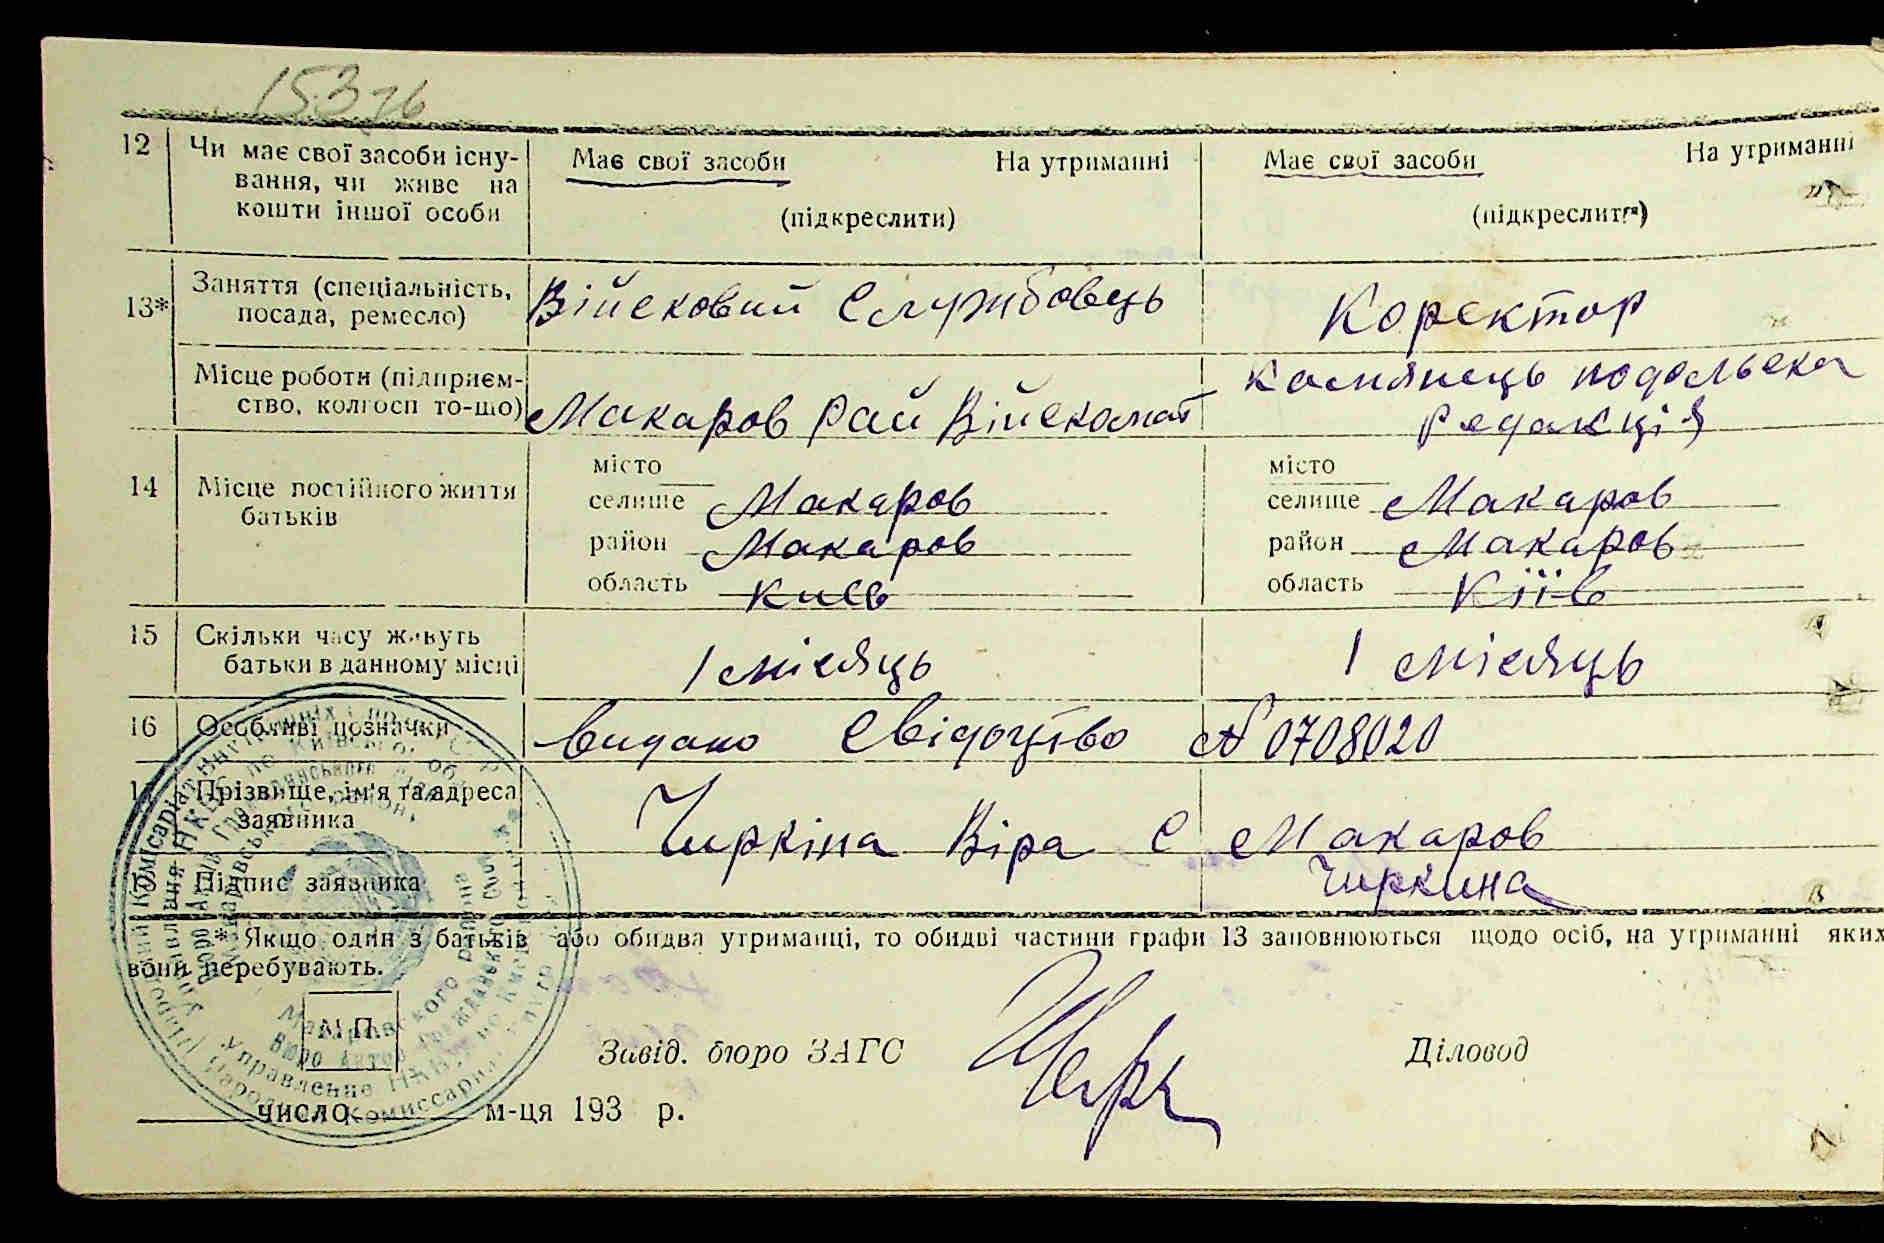 15376
12 Чи має свої засоби існу- Має свої засоби На утриманні Має свої засоби На утриманні
вання, чи живе на
кошти іншої особи (підкреслити) (підкреслити)
13* Заняття (спеціальність, Війсковий Службовець Коректор
посада, ремесло)
Місце роботи (підприєм- Макаров Рай Військомат Камянець подольска
ство, колгосп то-що) редакція
14 Місце постійного життя місто місто
батьків селище Макаров селище Макаров
район Макаров район Макаров
область Киев область Кіїв
15 Скільки часу живуть 1 місяць 1 місяць
батьки в данному місці
16 Особливі позначки видано Свідоцтво № 0708020
17 Прізвище, ім'я та адреса Чиркіна Віра С Макаров
заявника
Підпис заявника Чиркина
* Якщо один з батьків або обидва утриманці, то обидві частини графи 13 заповнюються щодо осіб, на утриманні яких
вони перебувають.
М.П.
Завід. бюро ЗАГС Діловод
число м-ця 193 р.